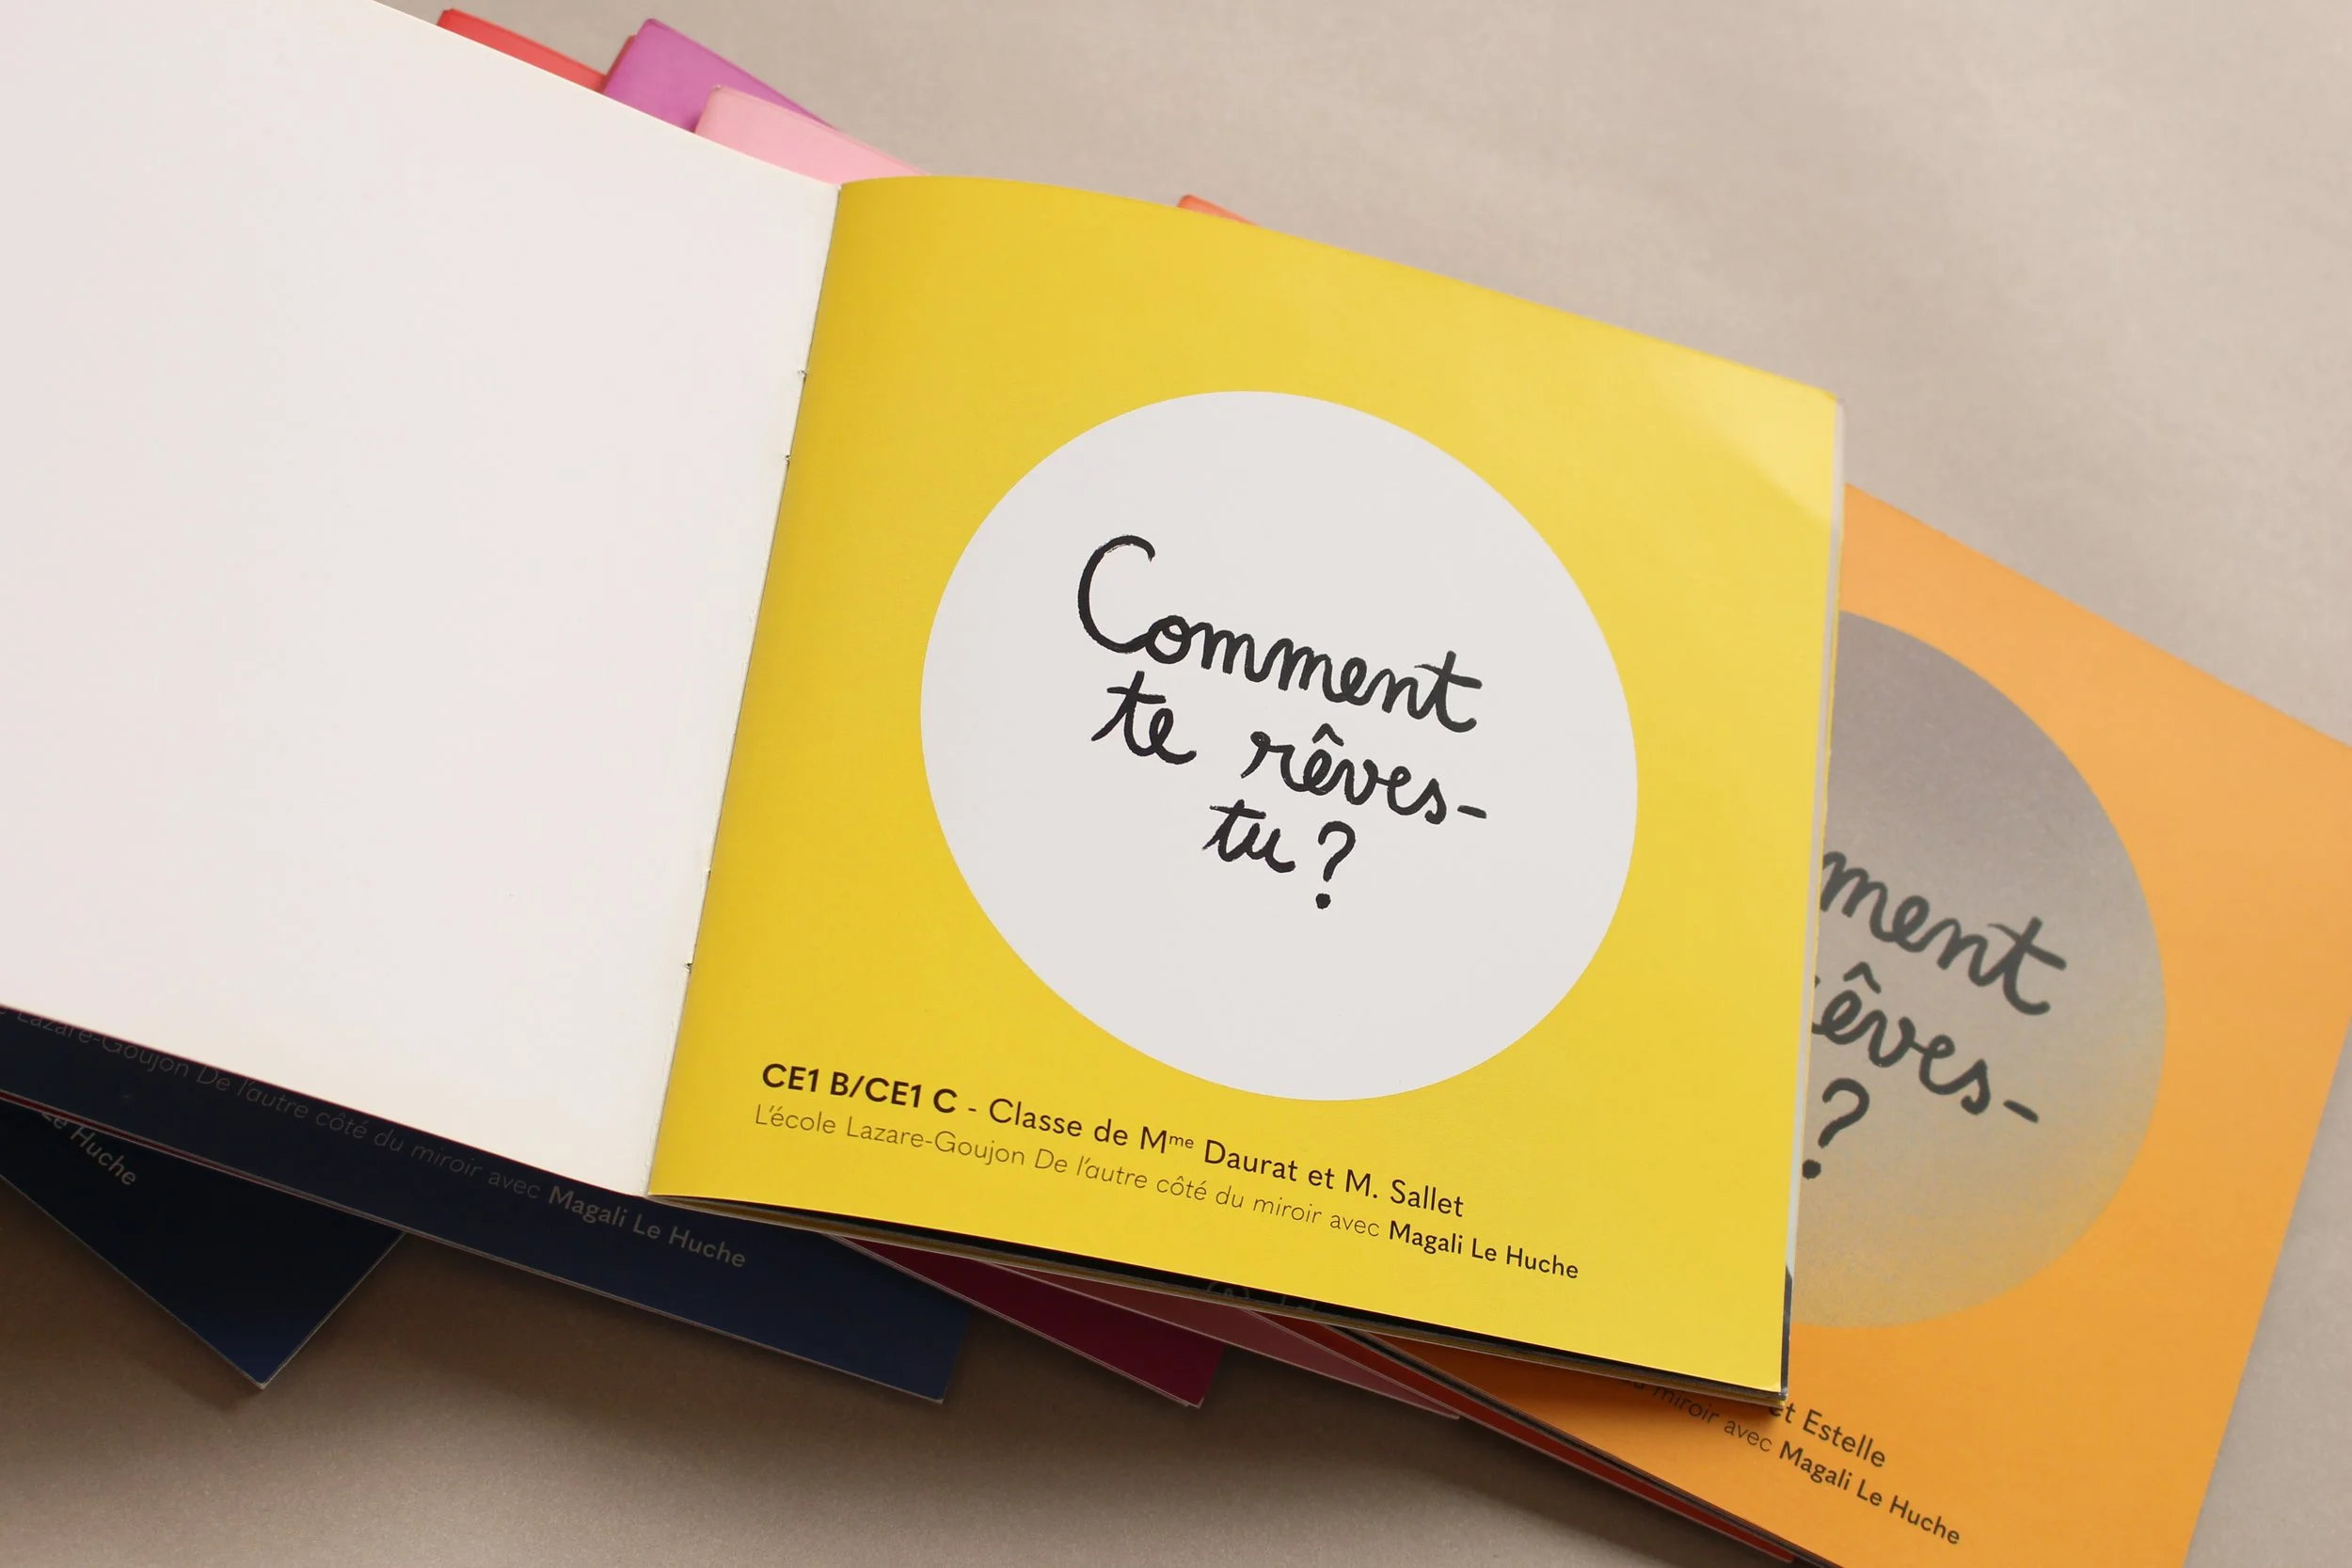 Comment
te rêves-
tu ?
CE1 B/CE1 C - Classe de Mme Daurat et M. Sallet
L'école Lazare-Goujon De l'autre côté du miroir avec Magali Le Huche
ment
êves-
?
et Estelle
miroir avec Magali Le Huche
Lazare-Goujon De l'autre côté du miroir avec Magali Le Huche
Le Huche